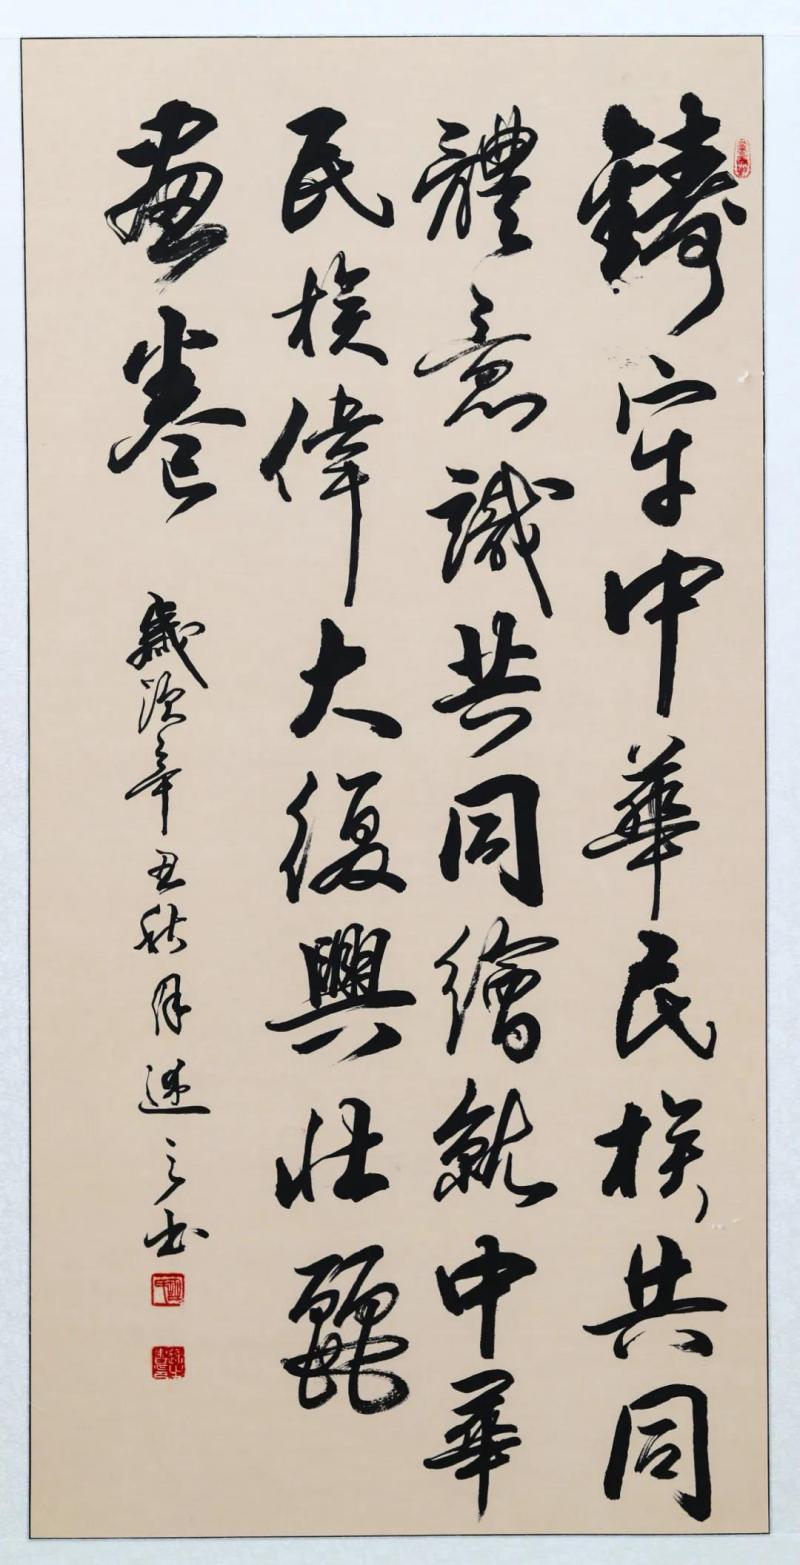 鑄牢中華民族共同
體意識共同繪就中華
民族偉大復興壯麗
畫卷
歲次辛丑秋月述之书